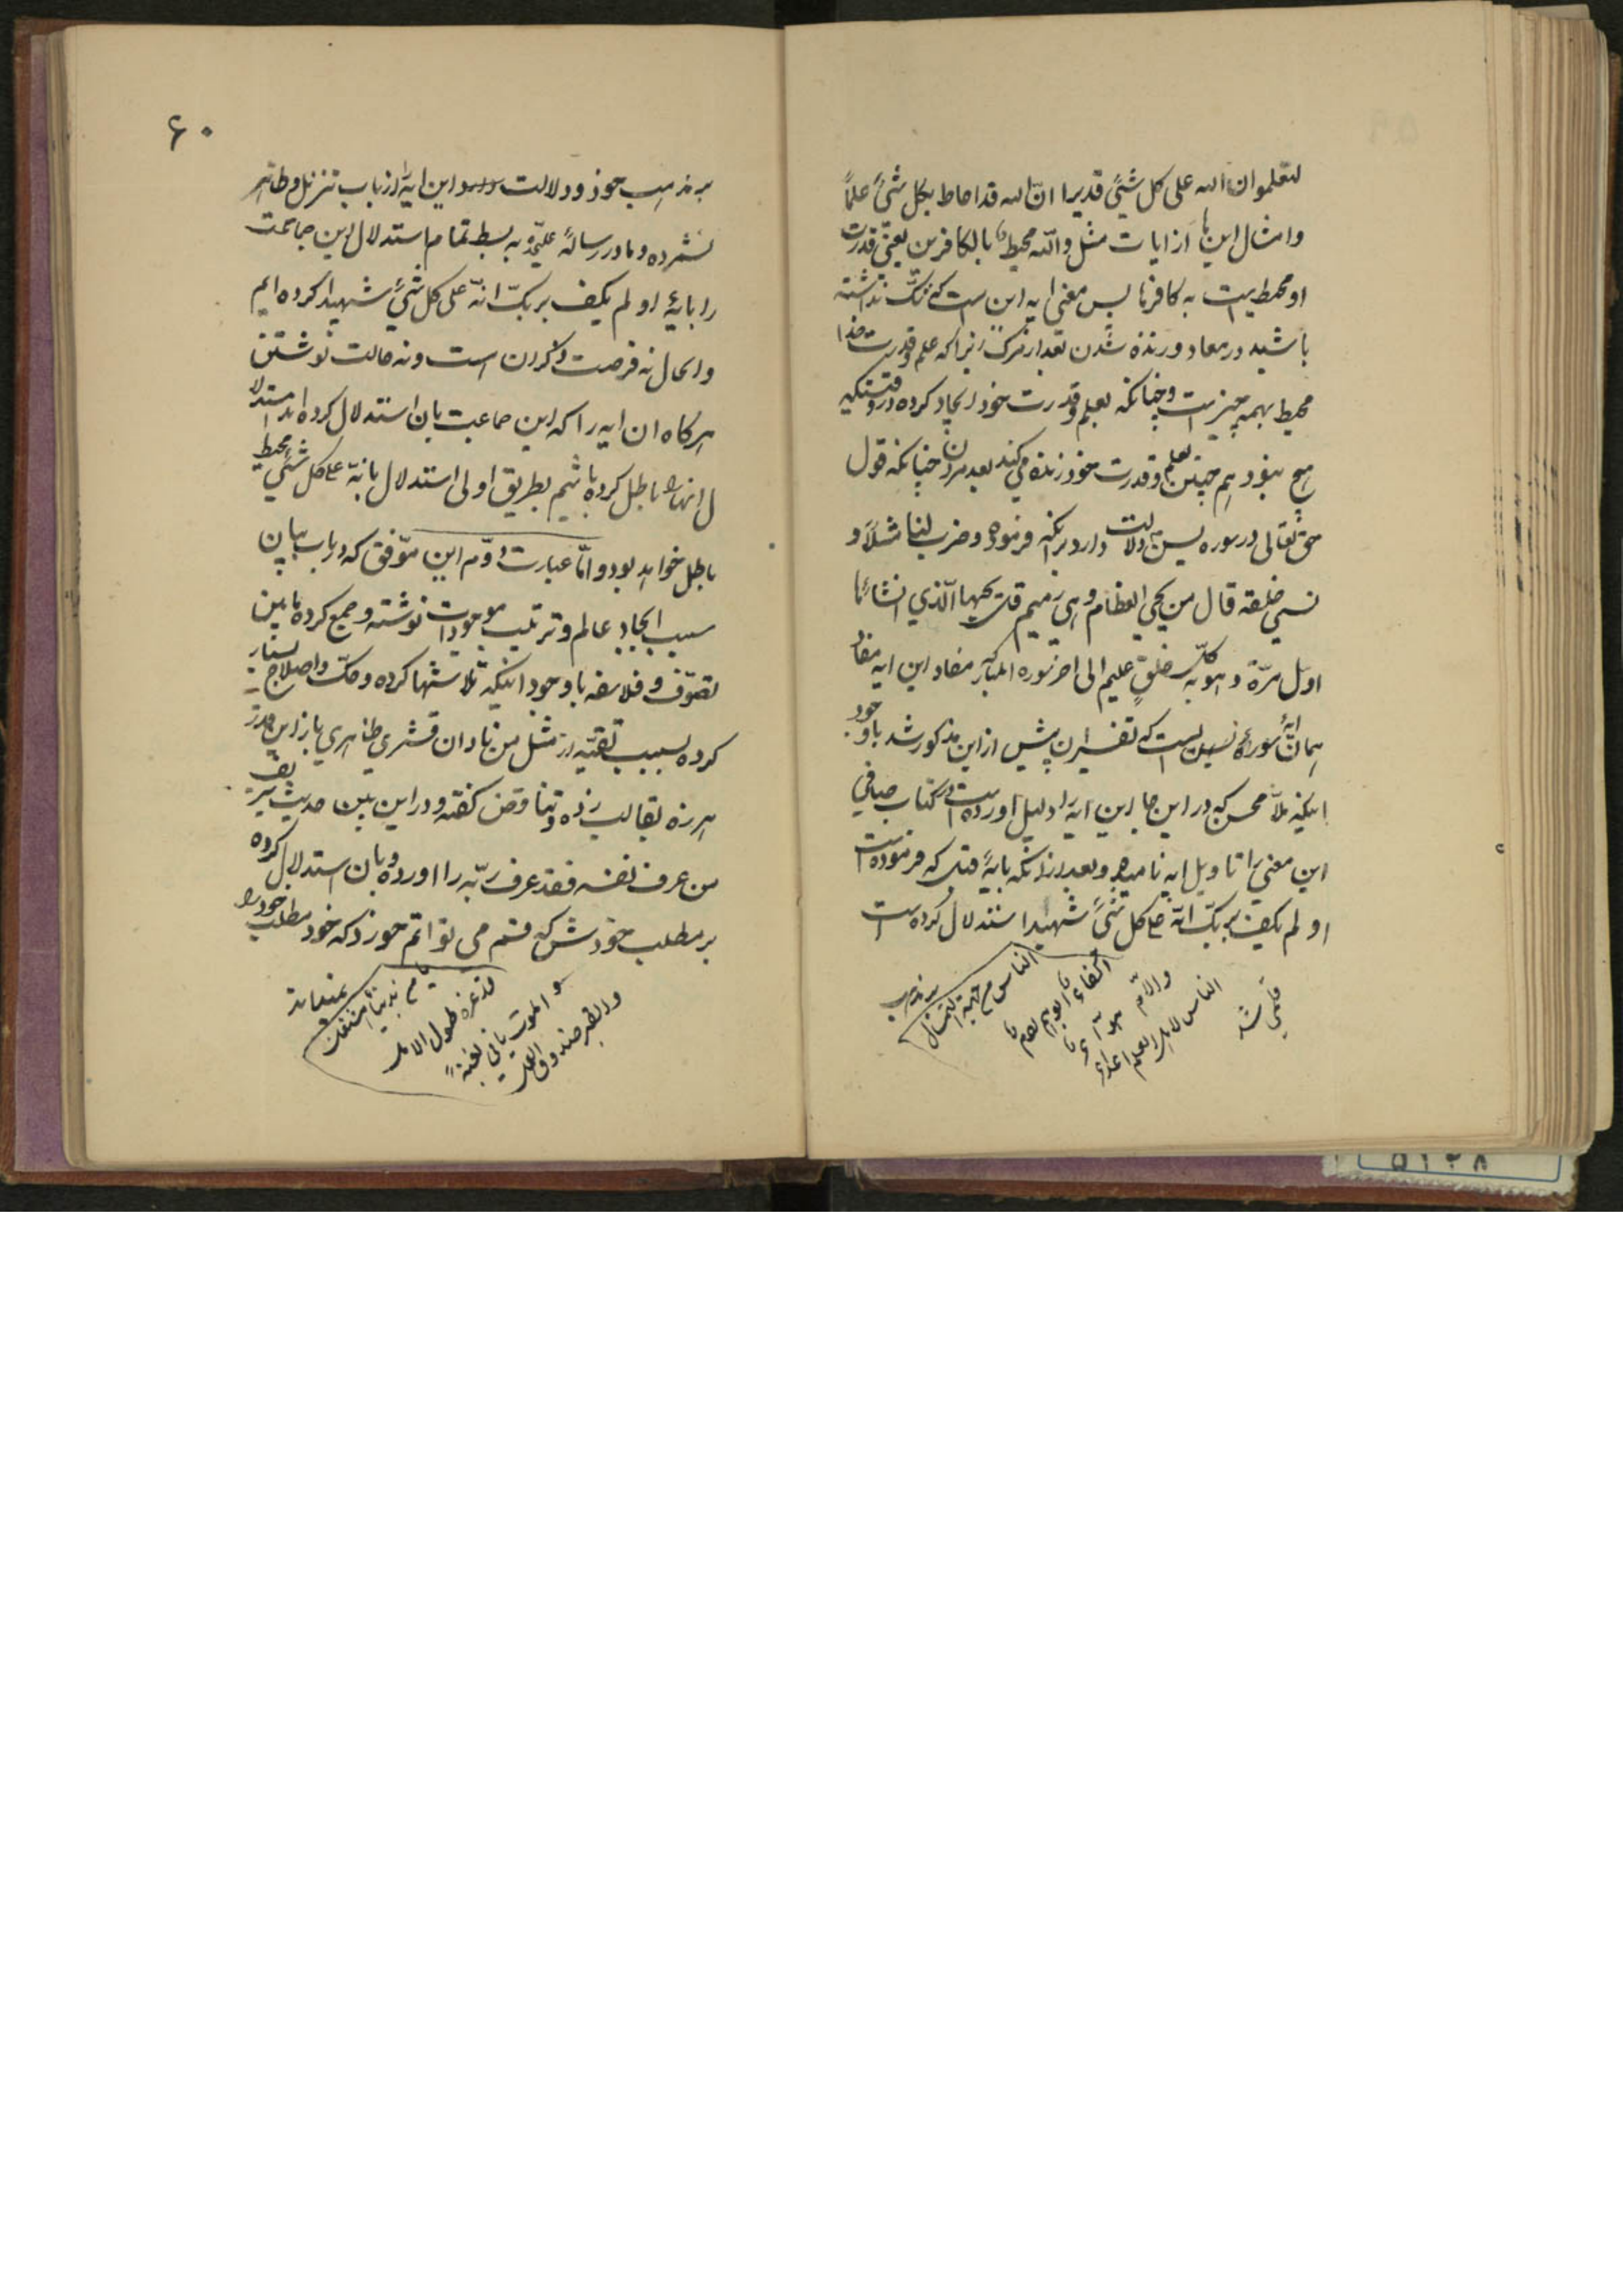 لتعلموا ان الله علی کل شیئ قدیرا انّ الله قد احاط بکل شیئ علماً
و امثال این ها از ایات مثل و الله محیط بالکافرین یعنی قدرت
او محیط است به کافرها پس معنی ایه این است که شک نداشته
باشید در معاد و زنده شدن بعد از مرک زیرا که علم و قدرت خدا
محیط بهمه چیز است و چنانکه بعلم و قدرت خود ایجاد کرده در وقتیکه
هیچ نبود هم چنین بعلم و قدرت خود زنده می کند بعد مردن چنانکه قول
حق تعالی در سوره یس دلالت دارد بر انکه فرموده و ضرب لنا مثلاً و
نسی خلقه قال من یحیی العظام و هی رمیم قل یحییها الّذی انشاها
اول مرّة و هو بکلّ خلق علیم الی اخر سوره المبارکه مفاد این ایه مفاد
همان ایۀ سوره یس است که تفسیر ان پیش از این مذکور شد با وجود
اینکه ملاّ محسن که در این جا این ایه را دلیل اورده است در کتاب صافی
این معنی را تاویل ایه نامیده و بعد از انکه بایۀ قبل که فرموده است
او لم یکف بربک انّه علی کل شیئ شهید استدلال کرده است
الناس من جهة التمثال اکفاء
ابوهم ادم والامّ حوّاء
الناس لاهل العلم اعداء
بر مذهب
۶۰
بر مذهب خود و دلالت این ایه را از باب تنزیل و ظاهر
نشمرده و ما در رساله علیحده به بسط تمام استدلال این جماعت
را بایۀ او لم یکف بربکّ انّه علی کل شیئ شهید کرده ایم
و الحال نه فرصت ذکر ان است و نه حالت نوشتن
هر کاه ان ایه را که این جماعت بان استدلال کرده اند استدلا
ل انها را باطل کرده باشیم بطریق اولی استدلال بانّه علی کل شیئ محیط
باطل خواهد بود و امّا عبارت دوّم این موفّق که در باب بیان
سبب ایجاد عالم و ترتیب موجودات نوشته و جمع کرده مابین
تصوّف و فلاسفه با وجود اینکه تلاشها کرده و حکّ و اصلاح بسیار
کرده بسبب تقیّه از مثل من نادان قشری ظاهری باز این قدر
هرزه بقالب زده و تناقض کفته و در این بین حدیث شریف
من عرف نفسه فقد عرف ربّه را اورده و بان استدلال کرده
بر مطلب خودش که قسم می توانم خورد که خود مطلب خود را
یا من بدنیا اشتغل
قد غرّه طول الامل
و الموت یاتی بغتة
و القبر صندوق العمل
نفهمیده
۵۱۲۸